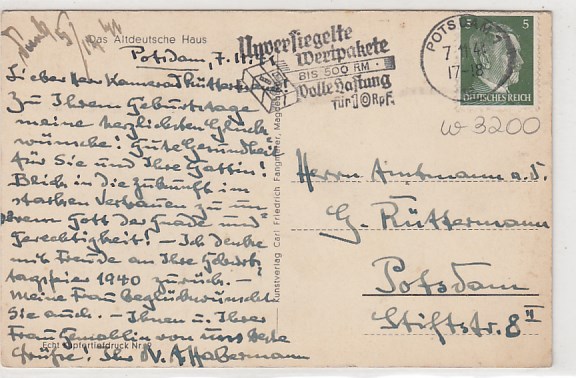 Das Altdeutsche Haus
Potsdam, 7.11.41
Lieber Herr Kamerad Rüttermann!
Zu Ihrem Geburtstage
meine herzlichsten Glück-
wünsche! Gute Gesundheit
für Sie und Ihre Gattin!
Blick in die Zukunft im
starken Vertrauen zu un-
serem Gott der Gnade und
Gerechtigkeit! – Ich denke
mit Freude an Ihre Geburts-
tagsfeier 1940 zurück. –
Meine Frau beglückwünscht
Sie auch. – Ihnen u. Ihrer
Frau Gemahlin von uns beste
Grüße! Ihr A. Habermann
Echt Kupfertiefdruck Nr. 9
Kunstverlag Carl Friedrich Fangmeier, Magdeburg
Unversiegelte
Wertpakete
BIS 500 RM
Volle Haftung
für 10 Rpf.
POTSDAM 7
7.11.41
17-18
5
DEUTSCHES REICH
W 3200
Herrn Amtmann a.D.
G. Rüttermann
Potsdam
Stiftstr. 8 II